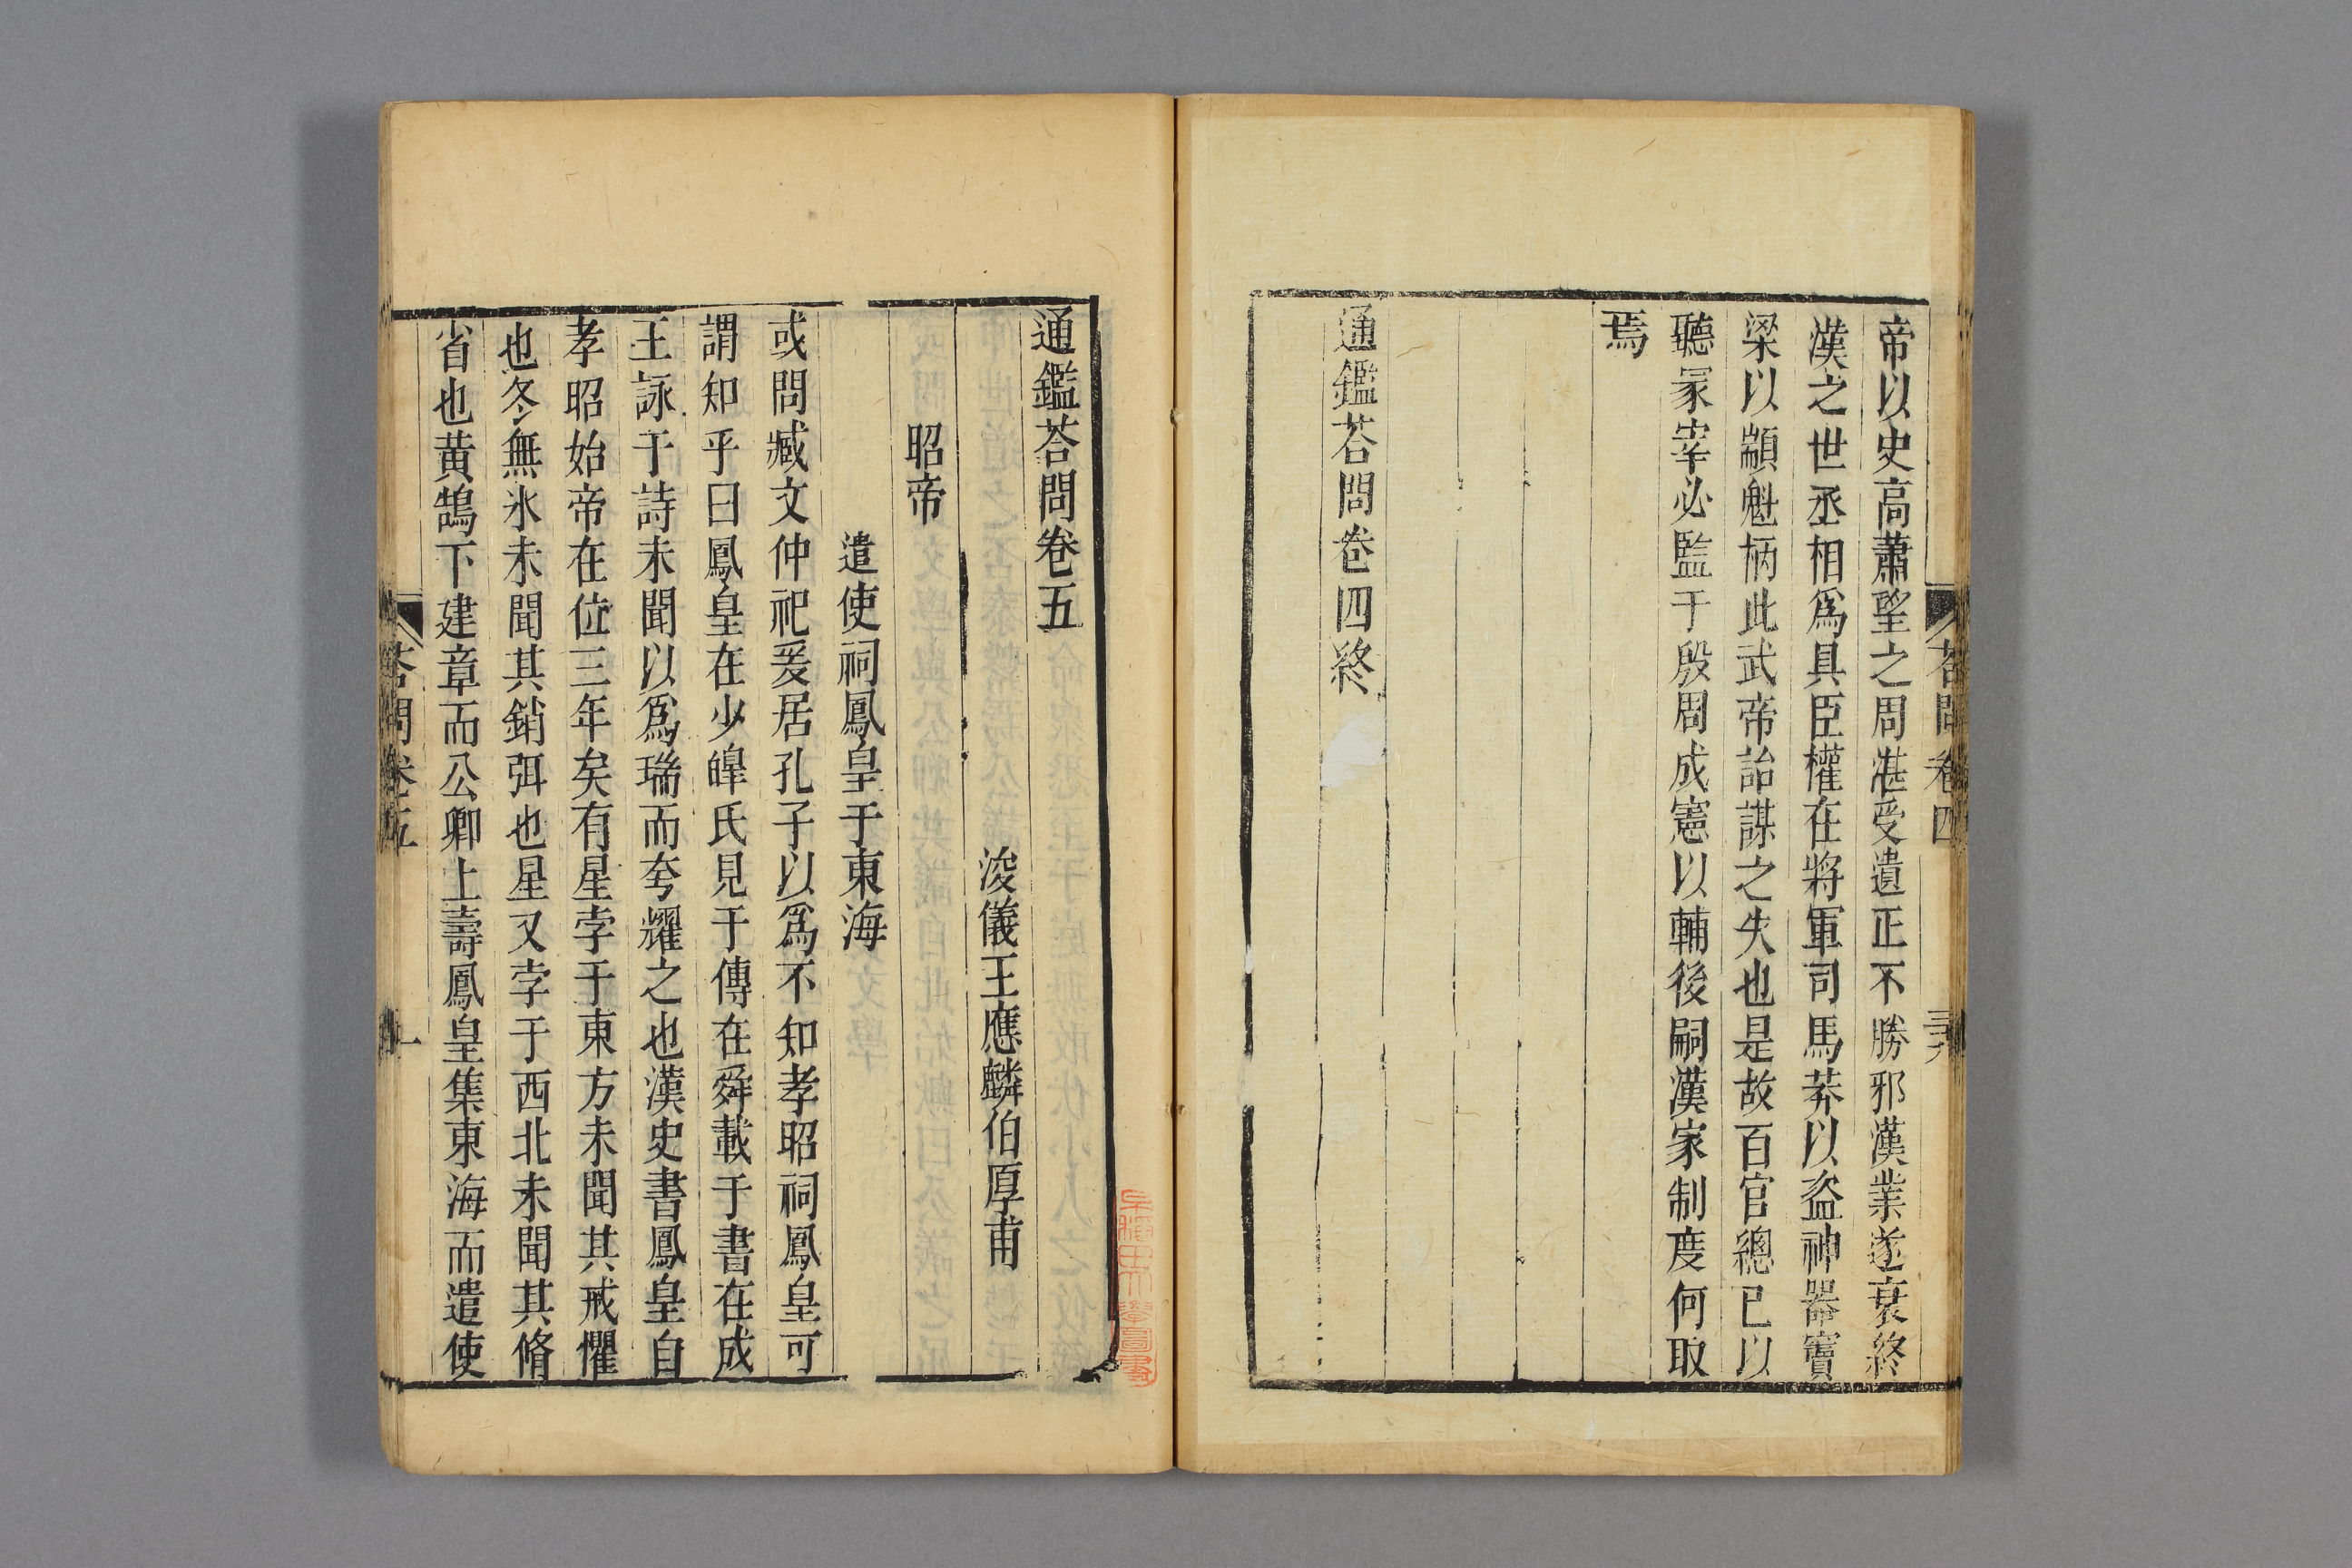 帝以史高蕭望之周湛受遺正不勝邪漢業遂衰終
漢之世丞相爲具臣權在將軍司馬莽以盜神器竇
梁以顓魁柄此武帝詒謀之失也是故百官總已以
聽冡宰必監于殷周成憲以輔後嗣漢家制度何取
焉
通鑑荅問卷四終
荅問卷四
通鑑荅問卷五
浚儀王應麟伯厚甫
昭帝
遣使祠鳳皇于東海
或問臧文仲祀爰居孔子以爲不知孝昭祠鳳皇可
謂知乎曰鳳皇在少皥氏見于傳在舜載于書在成
王詠于詩未聞以爲瑞而夸耀之也漢史書鳳皇自
孝昭始帝在位三年矣有星孛于東方未聞其戒懼
也冬無氷未聞其銷弭也星又孛于西北未聞其脩
省也黄鵠下建章而公卿上壽鳳皇集東海而遣使
荅問卷五
一
早稲田大學圖書